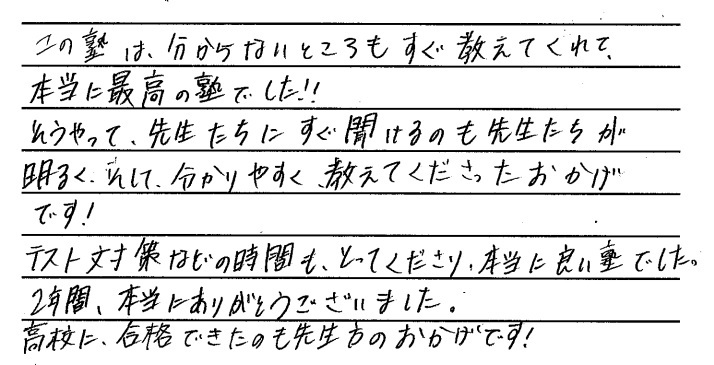 この塾は、分からないところもすぐ教えてくれて、
本当に最高の塾でした!!
そうやって、先生たちにすぐ聞けるのも先生たちが
明るく、そして、分かりやすく、教えてくださったおかげ
です!
テスト対策などの時間も、とってくださり、本当に良い塾でした。
2年間、本当にありがとうございました。
高校に、合格できたのも先生方のおかげです!